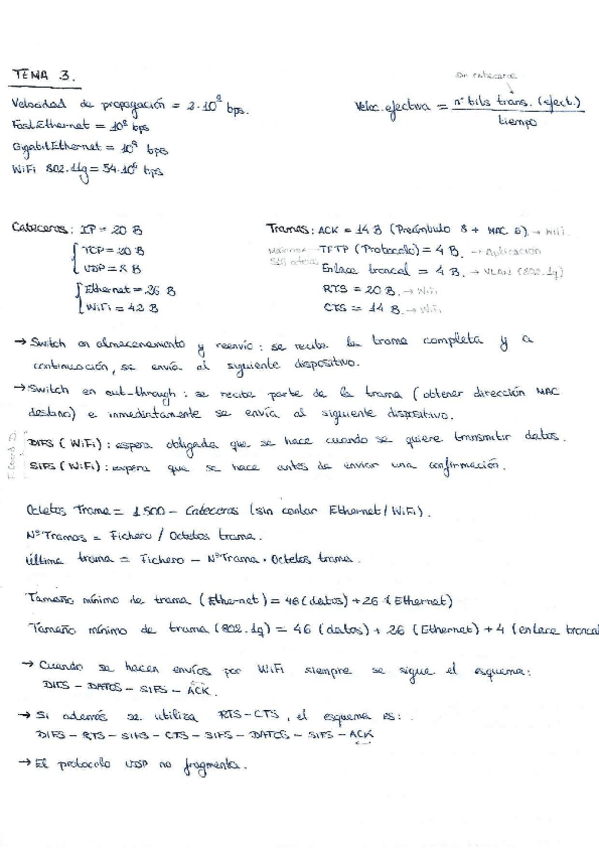 TEMA 3.
Velocidad de propagación = 2·10⁸ bps.
FastEthernet = 10⁸ bps
GigabitEthernet = 10⁹ bps
WiFi 802.11g = 54·10⁶ bps
sin cabeceras
Veloc. efectiva = nº bits trans. (efect.)
tiempo
Cabeceras: IP = 20 B
TCP = 20 B
UDP = 8 B
Ethernet = 26 B
WiFi = 42 B
Tramas: ACK = 14 B (Preámbulo 8 + MAC 6) → Wifi
TFTP (Protocolo) = 4 B. → Aplicación
Enlace troncal = 4 B. → VLAN (802.1q)
RTS = 20 B. → Wifi
CTS = 14 B. → Wifi
→ Switch en almacenamiento y reenvío: se recibe la trama completa y a
continuación, se envía al siguiente dispositivo.
→ Switch en cut-through: se recibe parte de la trama (obtener dirección MAC
destino) e inmediatamente se envía al siguiente dispositivo.
DIFS (WiFi): espera obligada que se hace cuando se quiere transmitir datos.
SIFS (WiFi): espera que se hace antes de enviar una confirmación.
Octetos Trama = 1500 - Cabeceras (sin contar Ethernet/WiFi).
Nº Tramas = Fichero / Octetos trama.
Última trama = Fichero - Nº Trama · Octetos trama.
Tamaño mínimo de trama (Ethernet) = 46 (datos) + 26 (Ethernet)
Tamaño mínimo de trama (802.1q) = 46 (datos) + 26 (Ethernet) + 4 (enlace troncal
→ Cuando se hacen envíos por WiFi siempre se sigue el esquema:
DIFS - DATOS - SIFS - ACK.
→ Si además se utiliza RTS-CTS, el esquema es:
DIFS - RTS - SIFS - CTS - SIFS - DATOS - SIFS - ACK
→ El protocolo UDP no fragmenta.